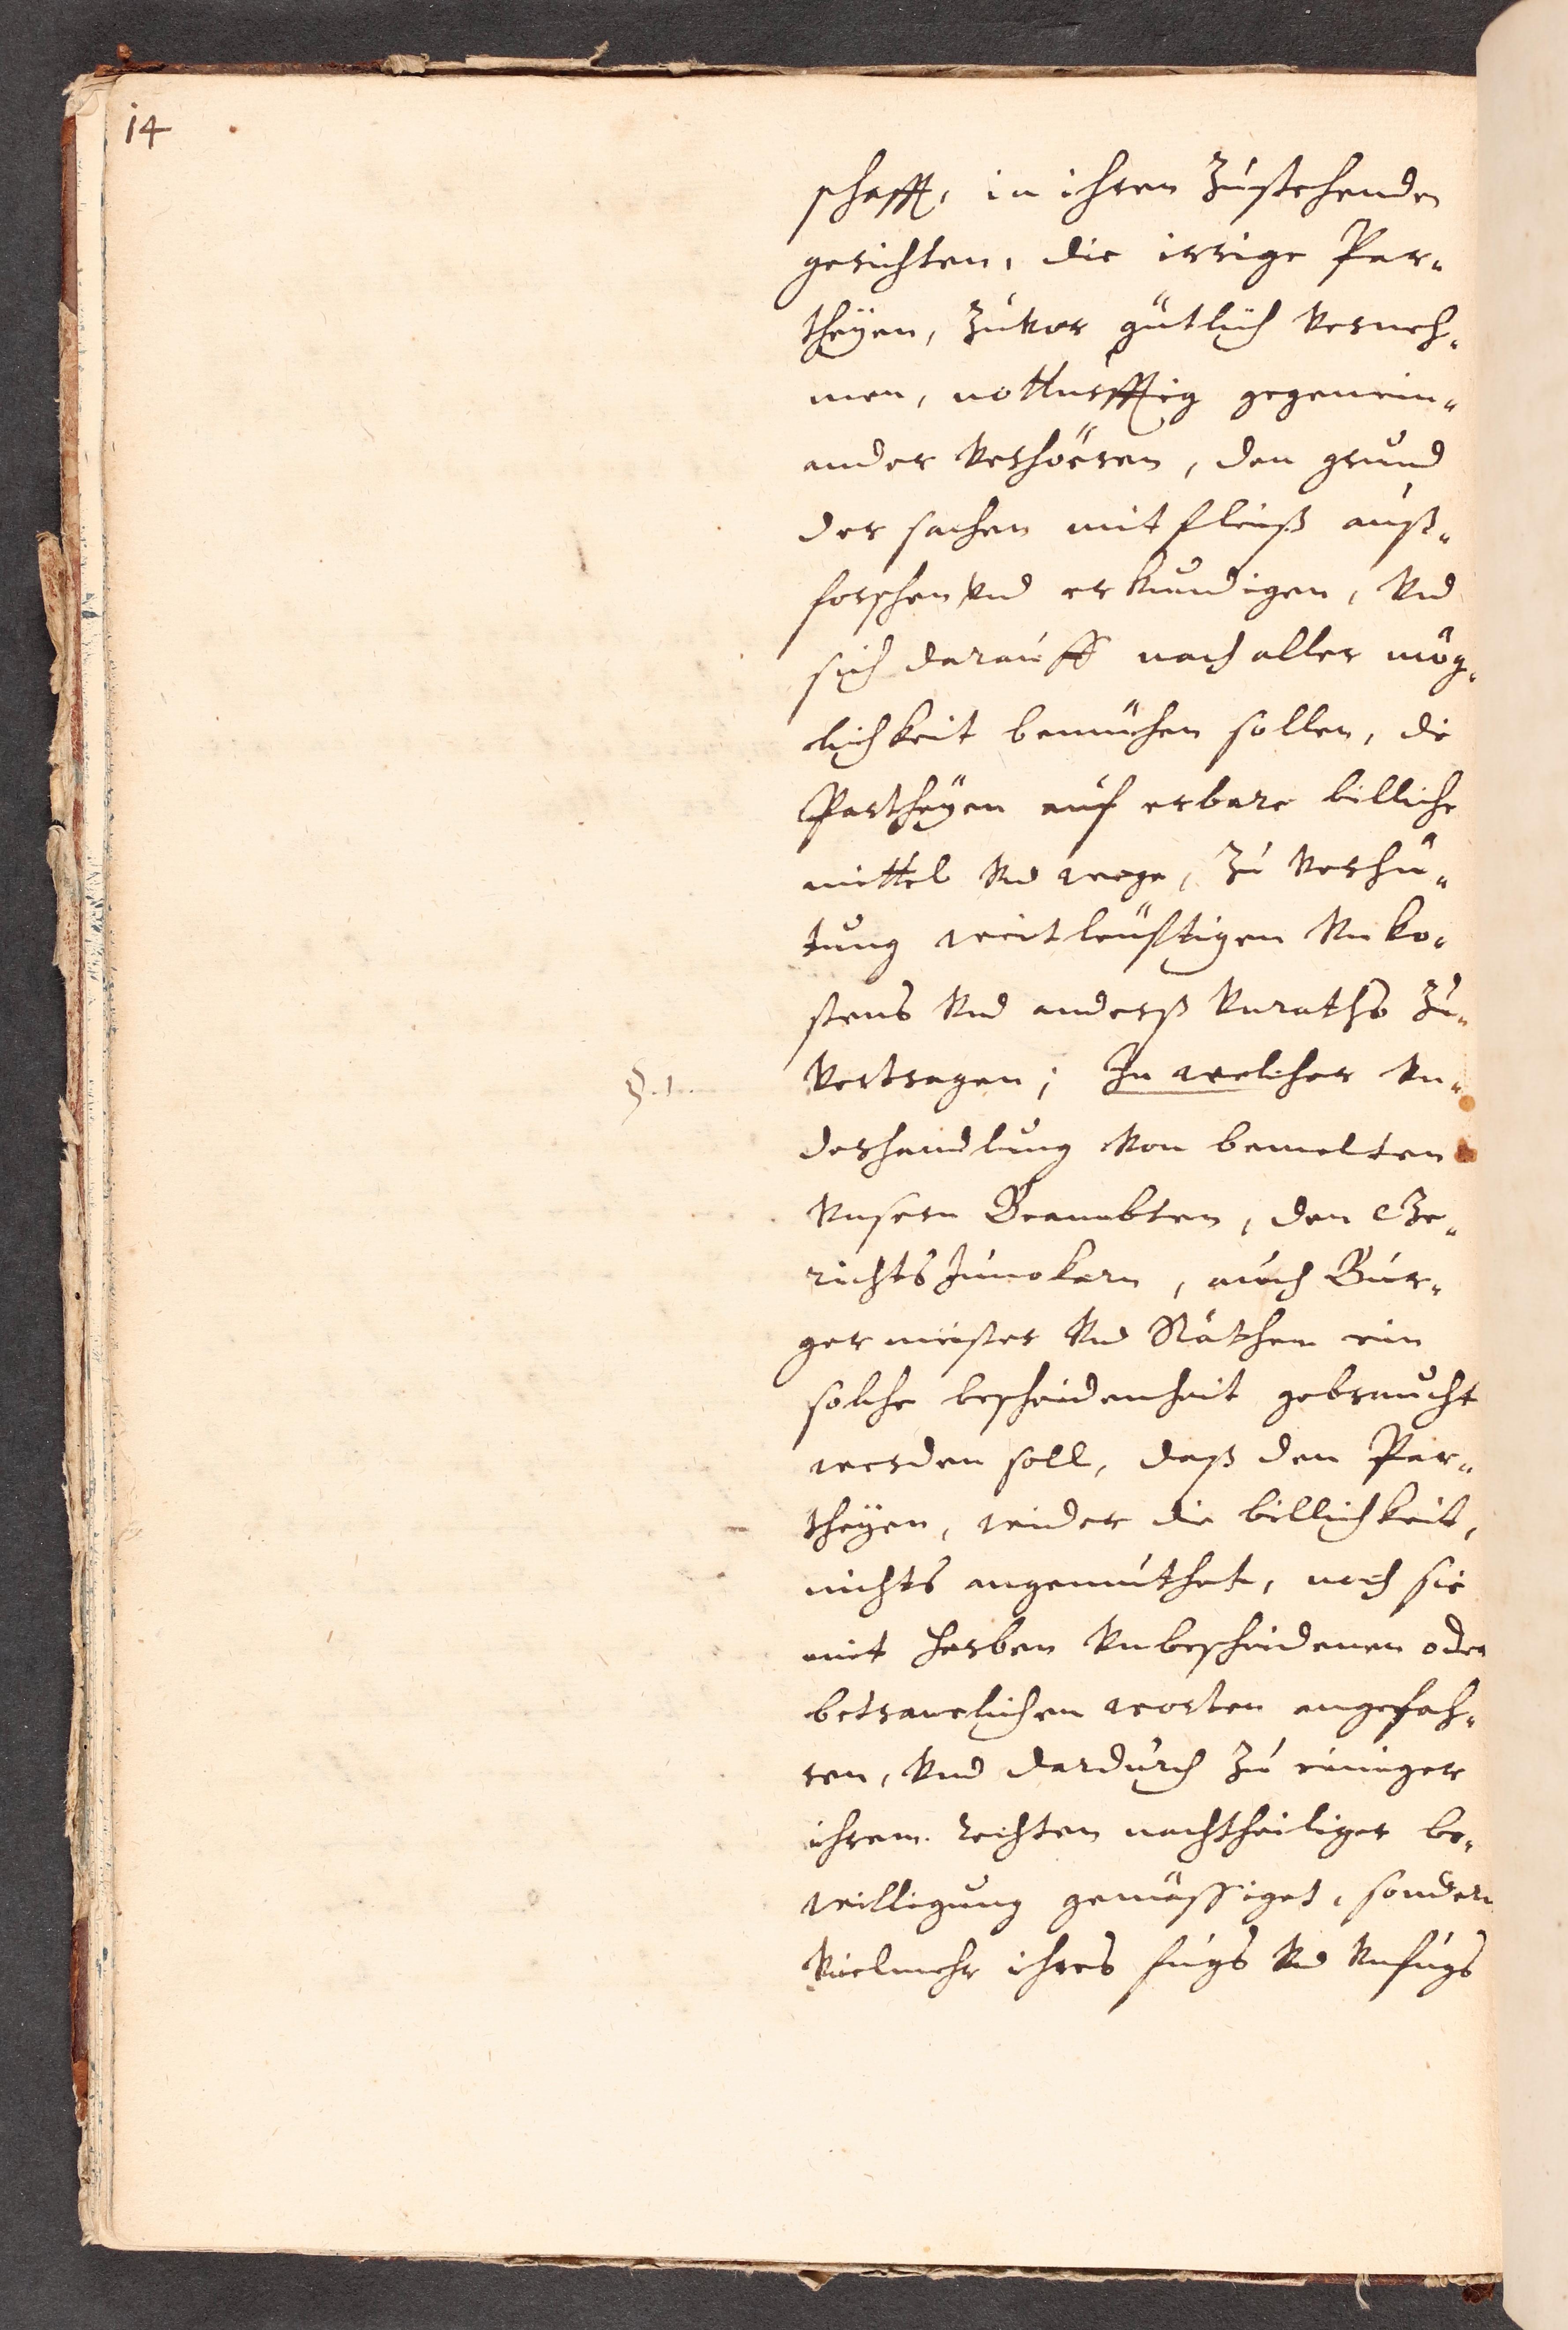 14
schafft, in ihren zustehenden
gerichten, die irrige Par„
theÿen, zuvor gütlich verneh„
men, notturfftig gegenein„
ander verhöeren, den grund
der sachen mit fleiß auß„
forschen vnd erkundigen, vnd
sich darauff nach aller mög„
lichkeit bemühen sollen, die
Partheÿen auf erbare billiche
mittel vnd wege, zu verhü„
tung weitleüftigen vnko„
stens vnd anderß vnraths zu„
§. 1. vertragen; In welcher vn„
derhandlung von bemelten
vnsern Beambten, den Ge„
richts Junckern, auch Bur„
germeister vnd Räthen ein
solche bescheidenheit gebraucht
werden soll, daß den Par„
theÿen, wider die billichkeit,
nichts angemuthet, noch sie
mit herben vnbescheidenen oder
betrawlichen worten angefah„
ren, vnd dardurch zu einiger
ihrem rechten nachtheiliger be„
willigung gemässiget, sondern
vielmehr ihres fugs vnd vnfugs